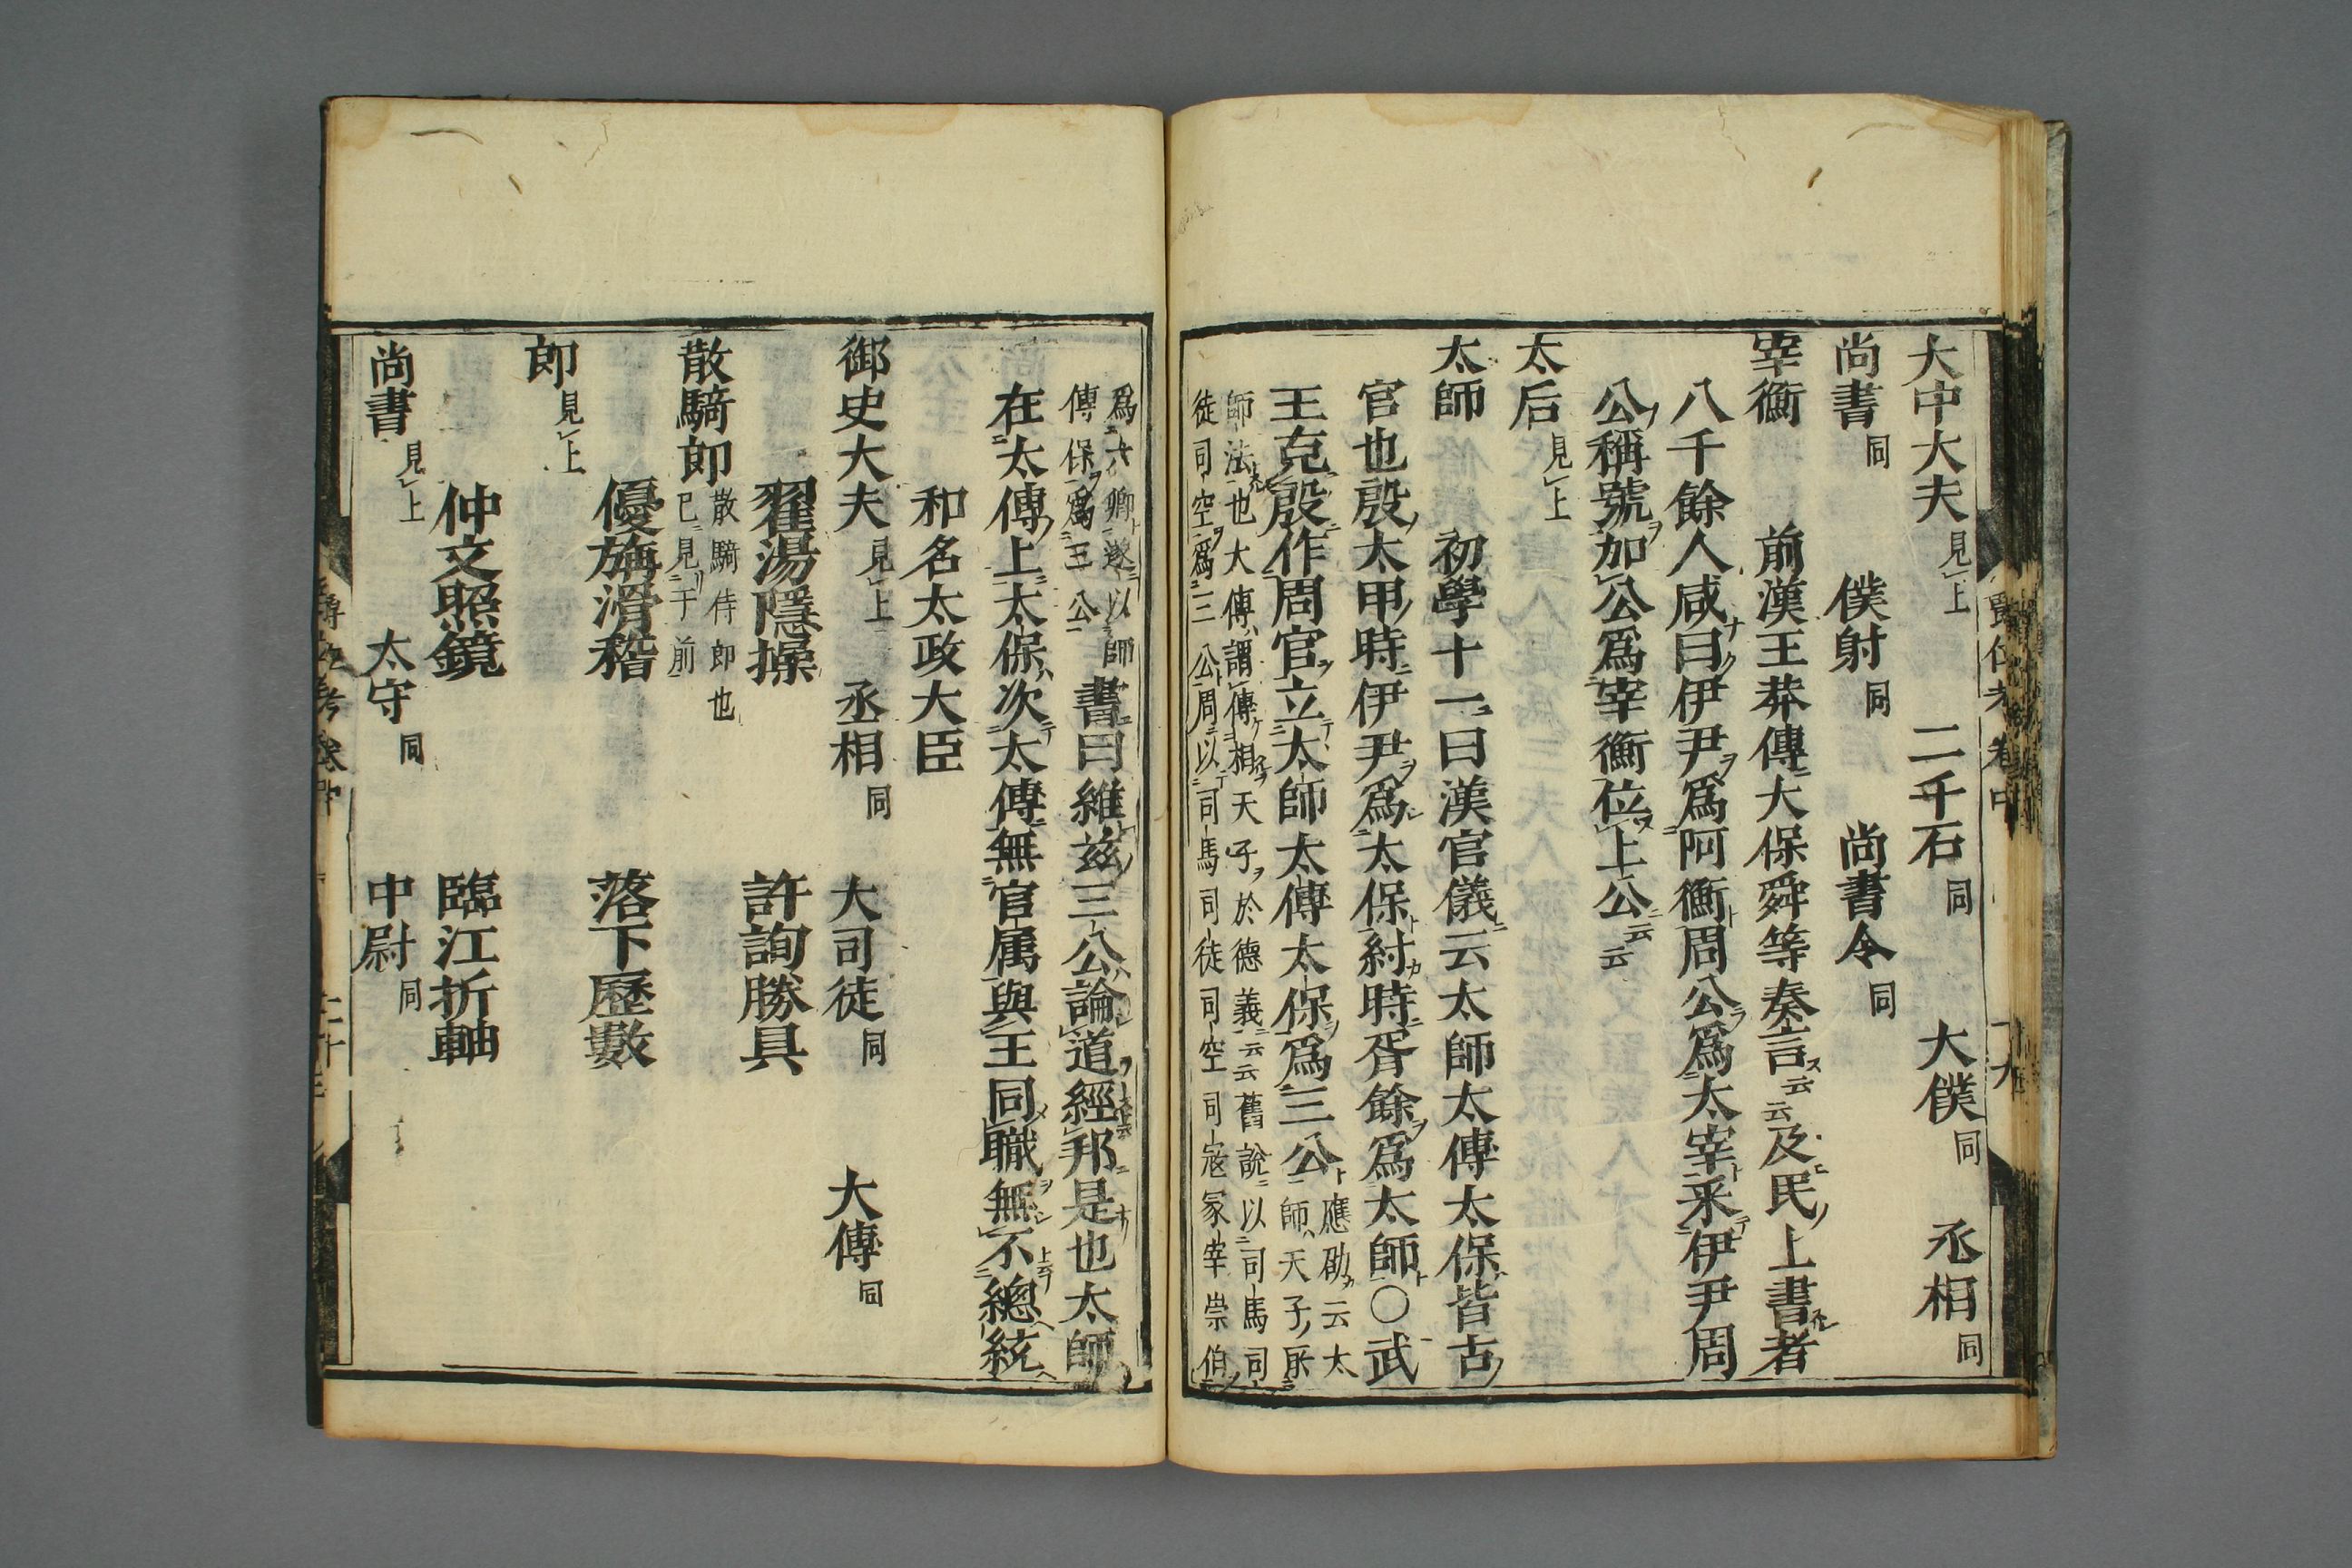 大中大夫見上　二千石同　大僕同　丞相同
尚書同　僕射同　尚書令同
宰衡　前漢王莽傳大保舜等奏言云云及民上書者
八千餘人咸曰伊尹爲阿衡周公爲太宰采伊尹周
公稱號加公爲宰衡位上公云云
太后見上
太師　初學十一曰漢官儀云太師太傅太保皆古
官也殷太甲時伊尹爲太保紂時胥餘爲太師〇武
王克殷作周官立太師太傅太保爲三公應劭云太
師天子所
師法也大傅謂傅相天子於德義云云舊說以司馬司
徒司空爲三公周以司馬司徒司空司寇冢宰崇伯
爲六卿遂以師
傅保爲三公　書曰維茲三公論道經邦是也太師
在太傅上太保次太傅無官属與王同職無不總統
和名太政大臣
御史大夫見上　丞相同　大司徒同　大傅同
翟湯隱操　許詢勝具
散騎郎散騎侍郎也
已見于前
優旃滑稽　落下歷數
郎見上
仲文照鏡　臨江折軸
尚書見上　太守同　中尉同